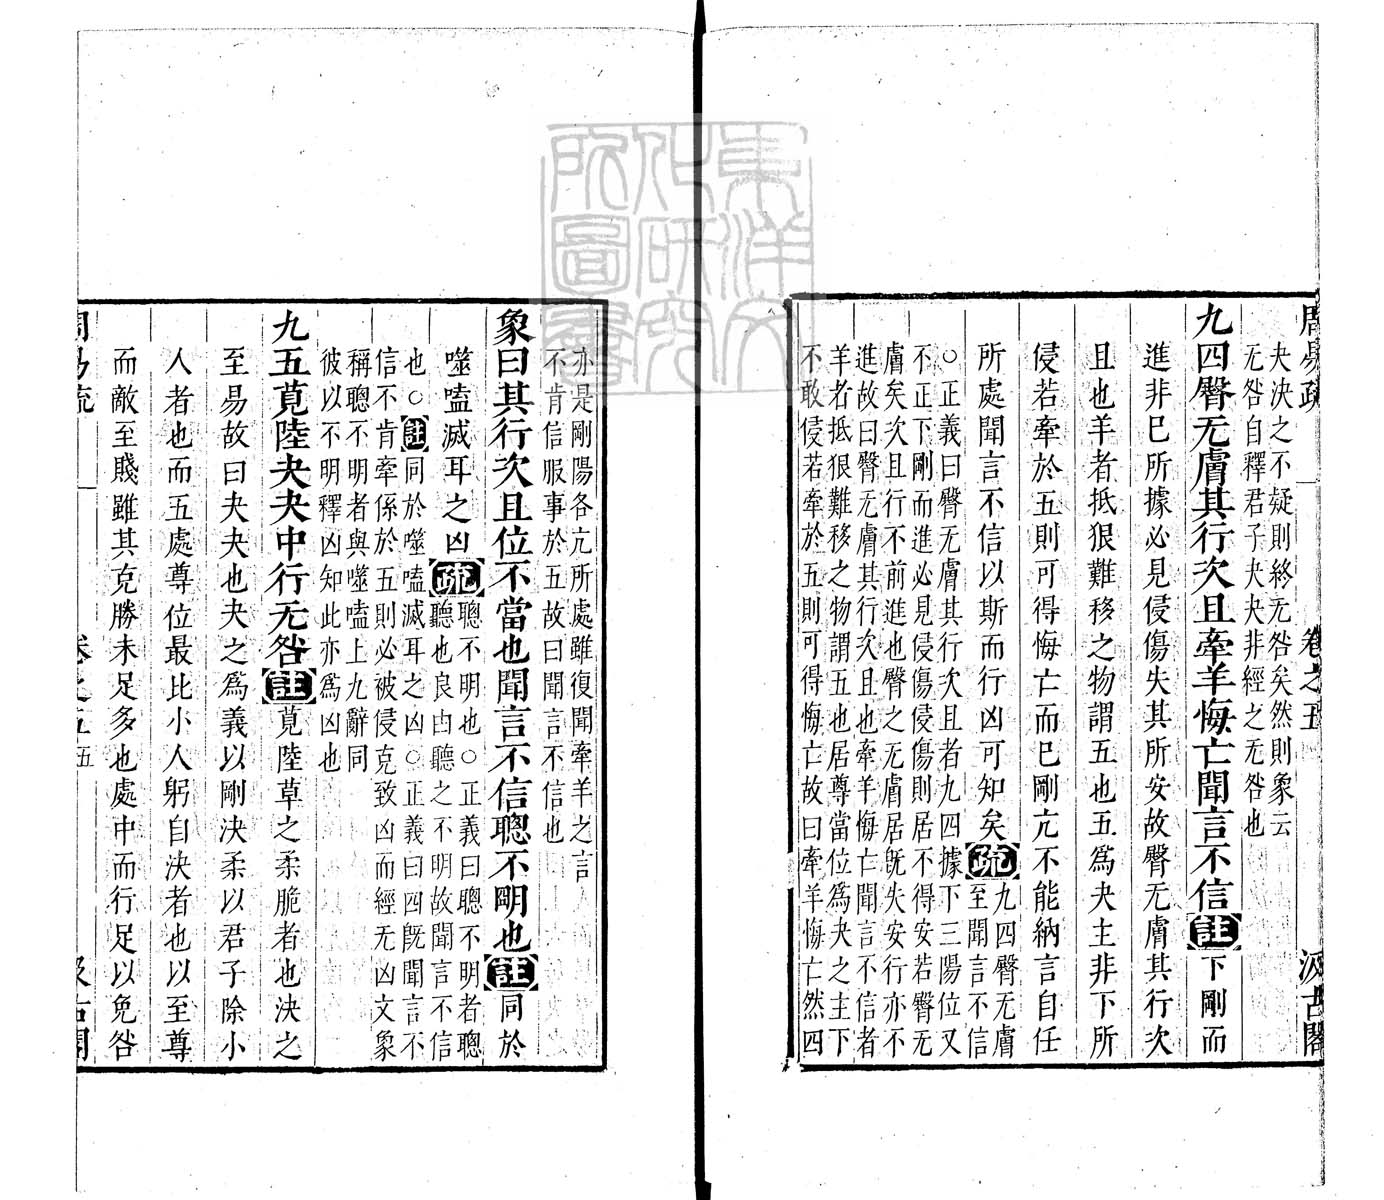 周易疏 卷之五 汲古閣
夬決之不疑則終无咎矣然則象云
无咎自釋君子夬夬非經之无咎也
九四臀无膚其行次且牽羊悔亡聞言不信註下剛而
進非已所據必見侵傷失其所安故臀无膚其行次
且也羊者抵狠難移之物謂五也五爲夬主非下所
侵若牽於五則可得悔亡而已剛亢不能納言自任
所處聞言不信以斯而行凶可知矣疏九四臀无膚
至聞言不信
○正義曰臀无膚其行次且者九四據下三陽位又
不正下剛而進必見侵傷侵傷則居不得安若臀无
膚矣次且行不前進也臀之无膚居旣失安行亦不
進故曰臀无膚其行次且也牽羊悔亡聞言不信者
羊者抵狠難移之物謂五也居尊當位爲夬之主下
不敢侵若牽於五則可得悔亡故曰牽羊悔亡然四
亦是剛陽各亢所處雖復聞牽羊之言
不肯信服事於五故曰聞言不信也
象曰其行次且位不當也聞言不信聰不明也註同於
噬嗑滅耳之凶疏聰不明也○正義曰聰不明者聰
聽也良由聽之不明故聞言不信
也○註同於噬嗑滅耳之凶○正義曰四旣聞言不
信不肯牽係於五則必被侵克致凶而經无凶文象
稱聰不明者與噬嗑上九辭同
彼以不明釋凶知此亦爲凶也
九五莧陸夬夬中行无咎註莧陸草之柔脆者也決之
至易故曰夬夬也夬之爲義以剛決柔以君子除小
人者也而五處尊位最比小人躬自決者也以至尊
而敵至賤雖其克勝未足多也處中而行足以免咎
周易疏 卷之五 五 汲古閣
東洋文化研究所圖書